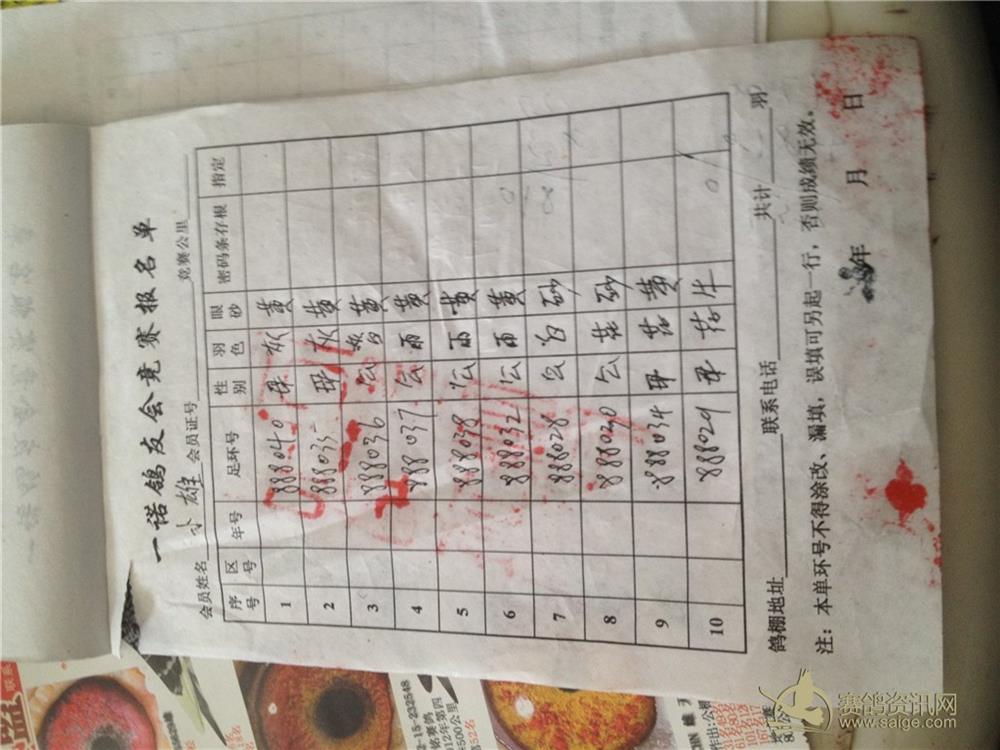 一诺鸽友会竞赛报名单
会员姓名 小雄 会员证号 竞赛公里
序号 区号 年号 足环号 性别 羽色 眼砂 密码条存根 指定
1 888040 母 灰 黄
2 888035 母 灰 黄
3 888036 公 黄
4 888037 公 雨 黄
5 888038 公 雨 黄
6 888032 公 雨 黄
7 888028 公 白 砂
8 888020 公 花 砂
9 888034 母 花 黄
10 888029 母 花 牛
鸽棚地址 联系电话 共计 羽
注：本单环号不得涂改、漏填，误填可另起一行，否则成绩无效。
年 月 日
2-15-232548
铭赛鸽
012年第四
500公里
第52名
赛鸽资讯网
www.saige.com